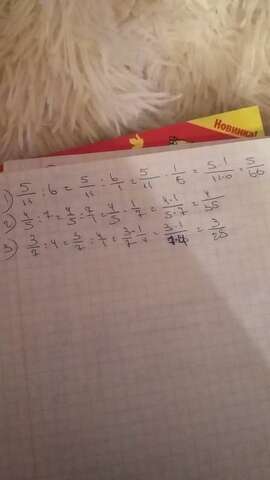 Новинка!
1) 5/11 : 6 = 5/11 : 6/1 = 5/11 · 1/6 = 5·1/11·6 = 5/66
2) 4/5 : 7 = 4/5 : 7/1 = 4/5 · 1/7 = 4·1/5·7 = 4/35
3) 3/7 : 4 = 3/7 : 4/1 = 3·1/7·4 = 3·1/7·4 = 3/28